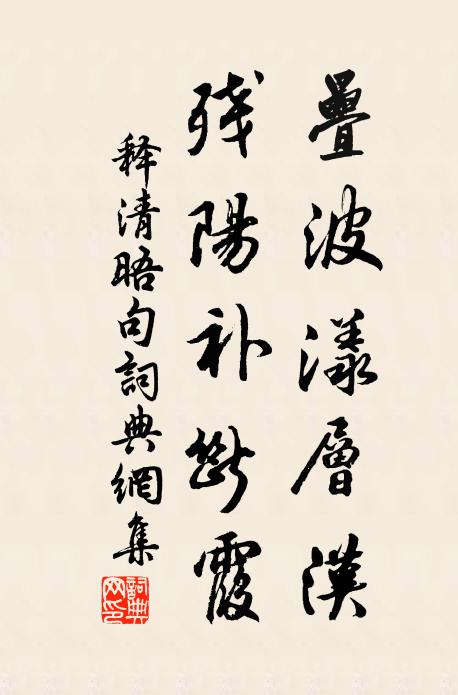 疊波漾層漢
残陽补斷霞
释清晤句詞典網集
詞典网印